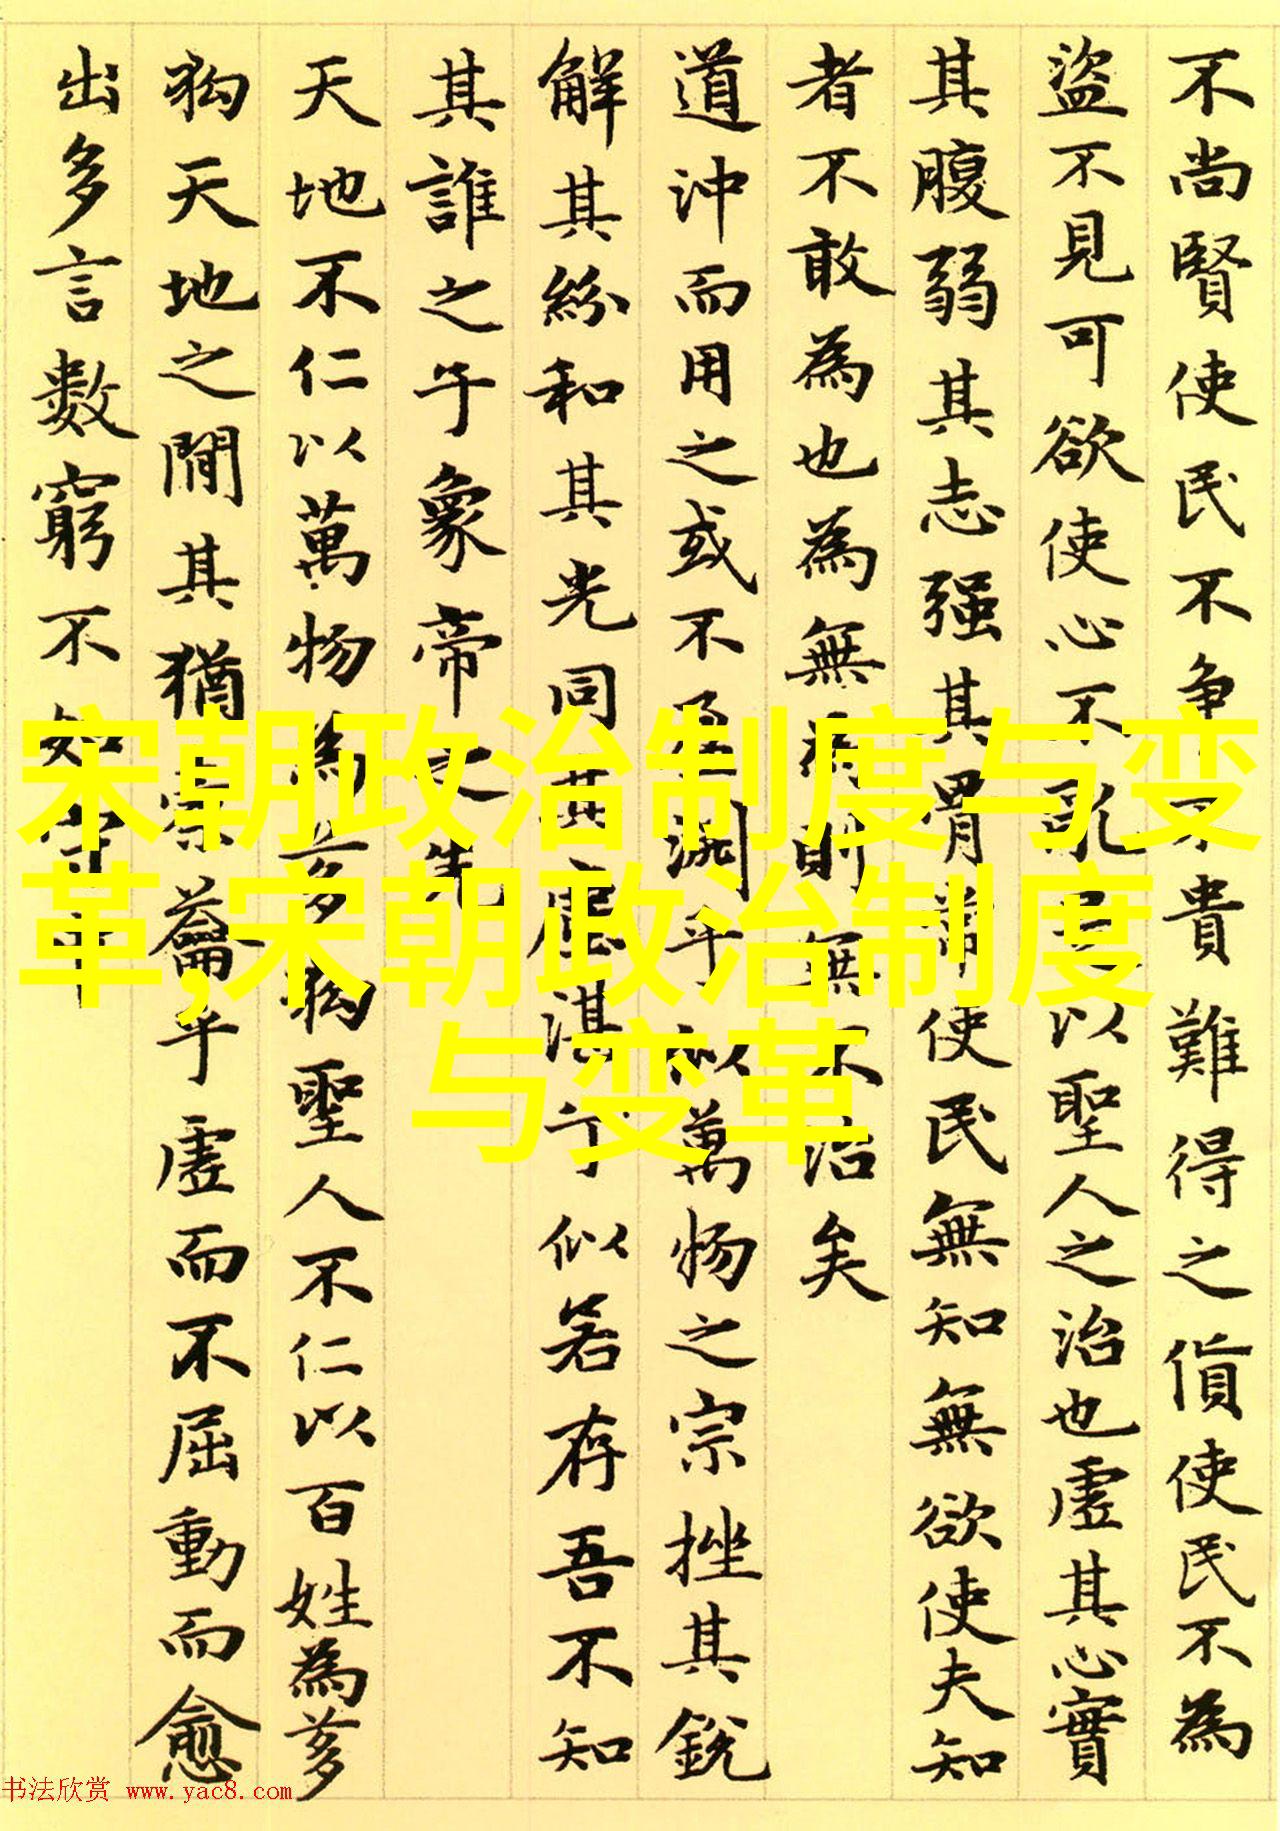 不尚賢使民不争不貴難得之貨使民不為
盜不見可欲使心不亂是以聖人之治也虛其心實
其腹弱其志强其骨常使民無知無欲使夫知
者不敢為也為無為則無不治矣
道沖而用之或不盈淵乎似萬物之宗挫其銳
解其紛和其光同其塵湛乎似若存吾不知
其誰之子象帝之先
天地不仁以萬物為芻狗聖人不仁以百姓為芻
狗天地之間其猶橐籥乎虛而不屈動而愈
出多言數窮不如守中
宋朝政治制度与变
革,宋朝政治制度
与变革
书法欣赏 www.yac8.com